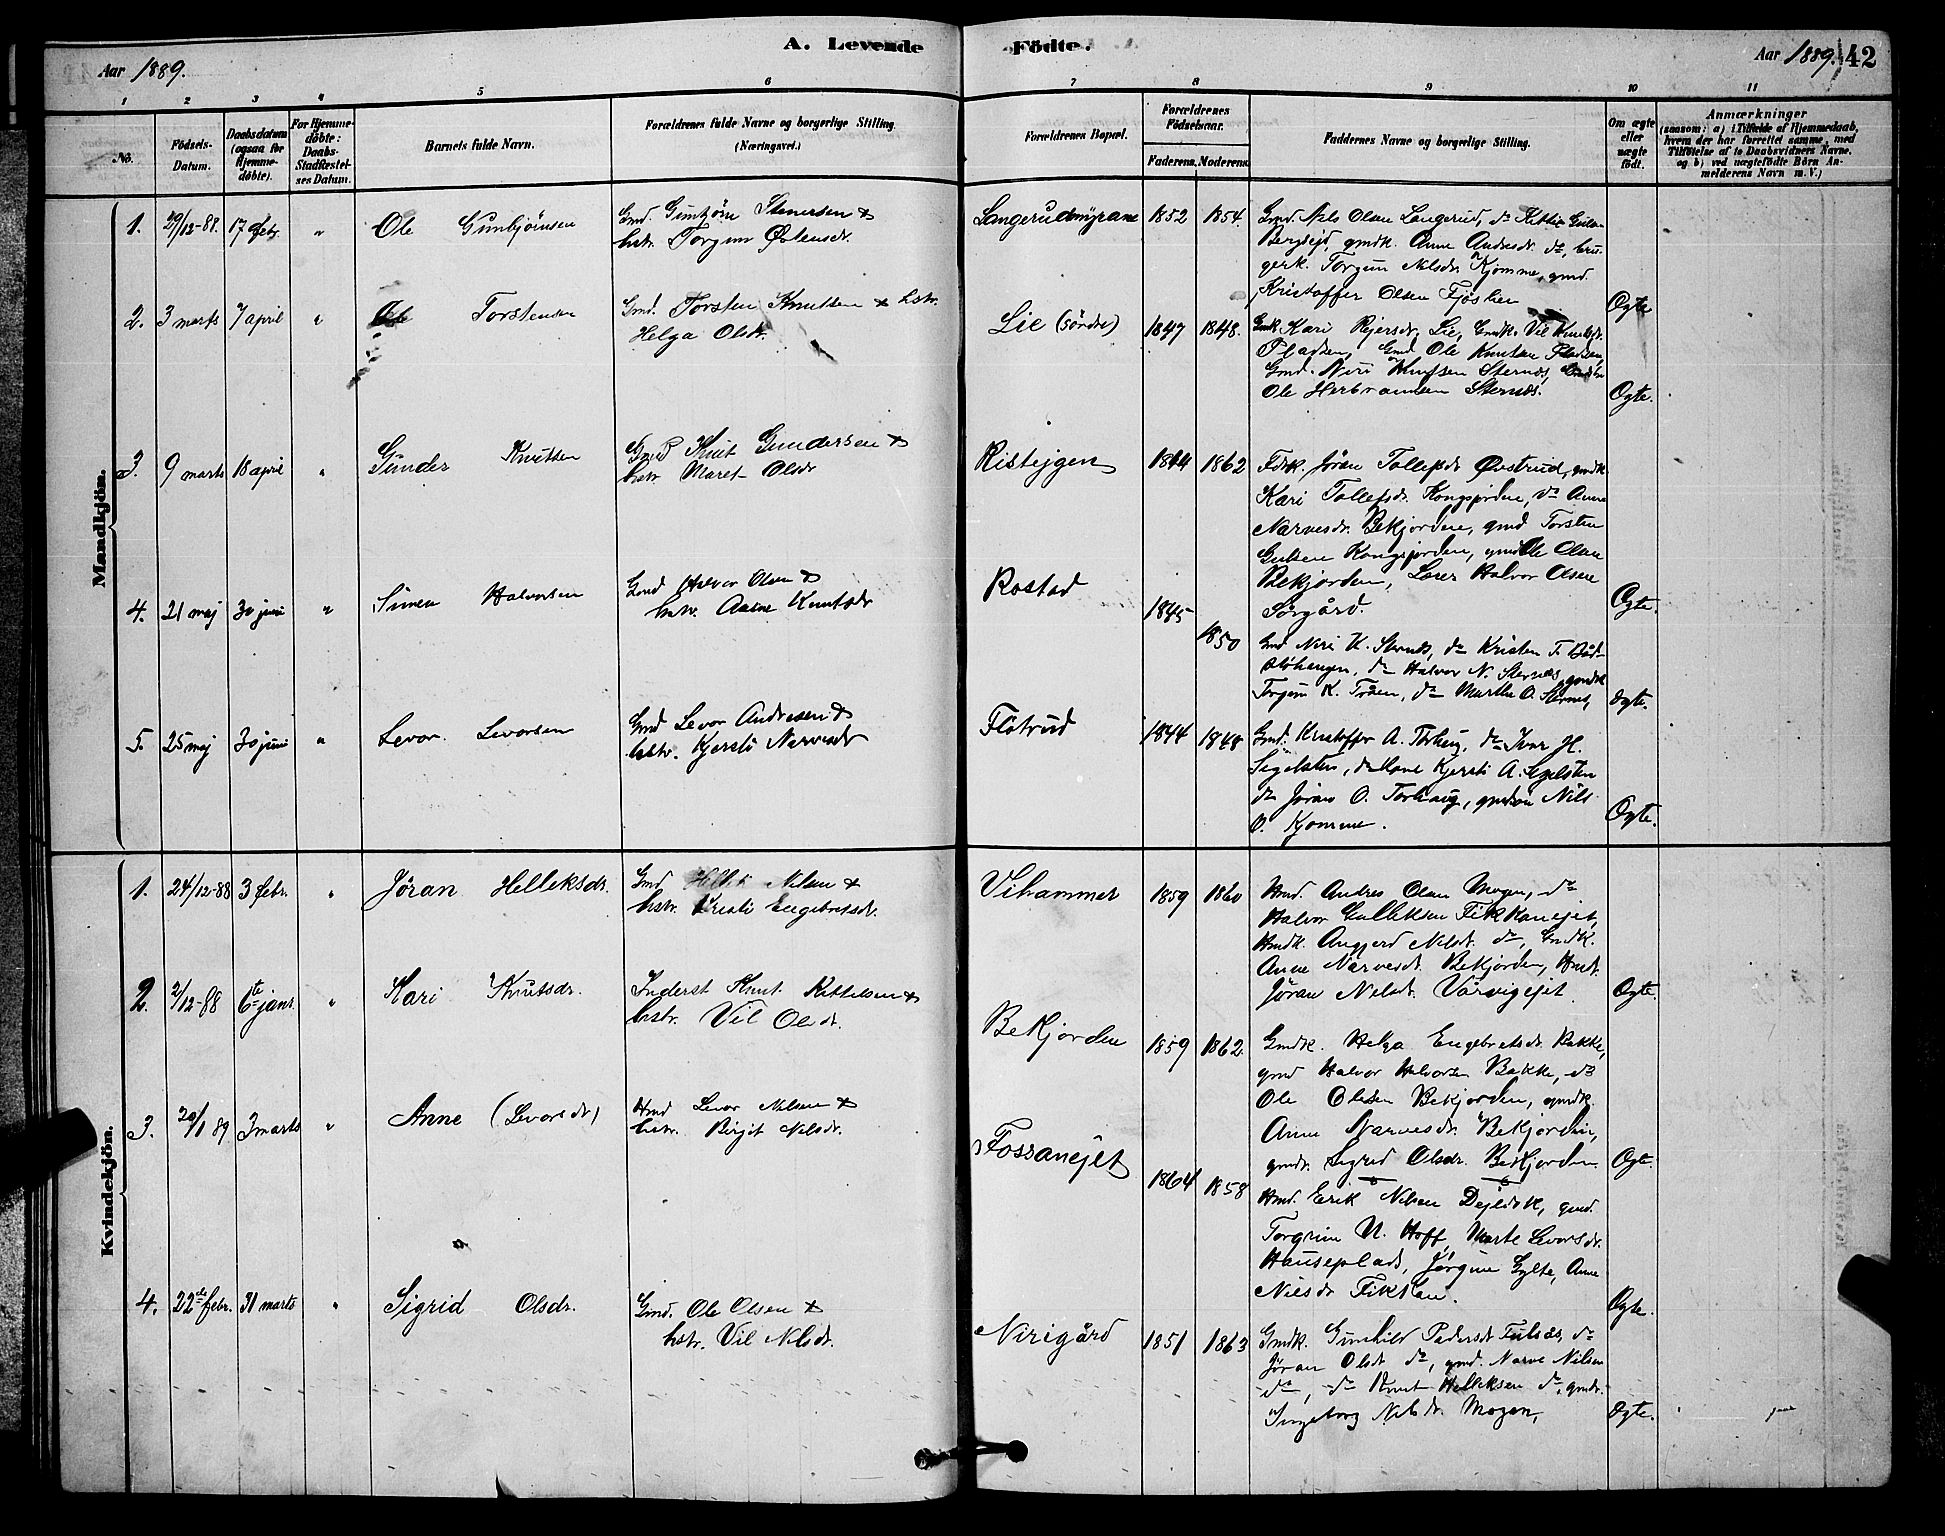 A. Levende Födte.
Aar 1889.
Aar 1889. 42
1 2 3 4 5 6 7 8 9 10 11
No.
Födsels-Datum.
Daabsdatum (ogsaa for Hjemmedöbte).
For Hjemmedöbte: Daabs-Stadfæstelses Datum.
Barnets fulde Navn.
Forældrenes fulde Navne og borgerlige Stilling.
(Næringsvei.)
Forældrenes Bopæl.
Forældrenes Födselsaar.
Faderens. Moderens.
Faddernes Navne og borgerlige Stilling.
Om ægte eller uægte födt.
Anmærkninger
(saasom: a) i Tilfælde af Hjemmedaab, hvem der har forrettet samme, med Tilföielse af to Daabsvidners Navne, og b) ved uægtefödte Börn Anmelderens Navn m. V.)
Mandkjön.
1. 29/12-88. 17 febr. " Ole Gunbjørnsen
Gmd. Gunbjørn Stenersen &
hstr. Torgun Østensdr.
Langerudmyrane 1852 1854.
Gmd. Nils Olsen Langerud, do Kittil
gmdk. Anne Andresdr. do,
Torgun Nilsdr. Kjomme, gmd.
Kristoffer Olsen Fjøslien
Ægte
2. 3 marts 7 april " Ole Torstensen
Gmd. Torsten Knutsen & hstr.
Helga Olsdr.
Lie (søndre) 1847 1848.
Gmdk. Kari Reiersdr. Lie, Gmdk. Vil Knutsdr.
Pladsen, Gmd Ole Knutsen Pladsen,
Gmd. Niri Knutsen Sternes,
Ole Herbransen Sternes.
Ægte.
3. 9 marts 18 april " Gunder Knutsen
Gmd Knut Gundersen &
hstr Maret Olsdr
Ristejgen 1844 1862
Jøran Tollefsdr Øvstrud, gmdk
Kari Tollefsdr. Kongsjorden, do Anne
Narvesdr. Bekjorden, gmd Torsten
Gulsen Kongsjorden, gmd Ole Olsen
Bekjorden, Halvor Olsen
Sørgård.
Ægte.
4. 21 maj 30 juni " Simen Halvorsen
Gmd Halvor Olsen &
hstr. Anne Knutsdr
Rostad 1845 1850
Gmd Niri K. Sternes, do Kristen T.
do Halvor N. Sternes, gmdk
Torgun K. Traaen, do Marthe O. Sternes,
Ægte.
5. 25 maj 30 juni " Levor Levorsen
Gmd Levor Andresen &
hstr. Kjersti Narvesdr
Flotrud 1844 1848
Gmd. Kristoffer A. Thrhaug, do Ivar H.
Segelsten, Kjersti A. Segelsten
do Jøran O. Torhaug, Nils
O. Kjomme.
Ægte.
Kvindekjön.
1. 24/12-88 3 febr. " Jöran Helleksdr.
Gmd Hellek Nilsen &
hstr. Kristi Engebretsdr.
Vihammer 1859 1860
Hmd. Andres Olsen Mogen, do
Halvor Gulleksen Fikkanejet,
Hmdk. Angjerd Nilsdr. do, Gmdk.
Anne Narvesdr. Bekjorden, Hmdr.
Jöran Nilsdr. Vårvigejet.
Ægte.
2. 2/12-88 6te janr. " Kari Knutsdr.
Inderst Knut Kittilsen &
hstr. Vil Olsdr.
Bekjorden 1859 1862.
Gmdk. Helga Engebretsdr. Bakke,
gmd Halvor Halvorsen Bakke, do
Ole Olesen Bekjorden, gmdk.
Anne Narvesdr. Bekjorden,
gmdr. Sigrid Olsdr. Bekjorden.
Ægte.
3. 20/1 89 3 marts " Anne (Levorsdr)
Hmd Levor Nilsen &
hstr. Birgit Nilsdr.
Fossanejet 1864 1858
Hmd. Erik Nilsen Dejlivk, gmd.
Torgrim N. Hoff, Marte Levorsdr.
Hauseplads, Jørgine Gylte, Anne
Nilsdr Fikkan.
Ægte.
4. 22de febr. 31 marts " Sigrid Olsdr.
Gmd. Ole Olsen &
hstr. Vil Nilsdr.
Nirigård 1851 1863
Gmdk. Gunhild Pedersdr Tulsås, do
Jøran Olsdr do, gmd. Narve Nilsen
do, do Knut Helleksen do, gmdr.
Ingeborg Nilsdr. Mogen,
Ægte.